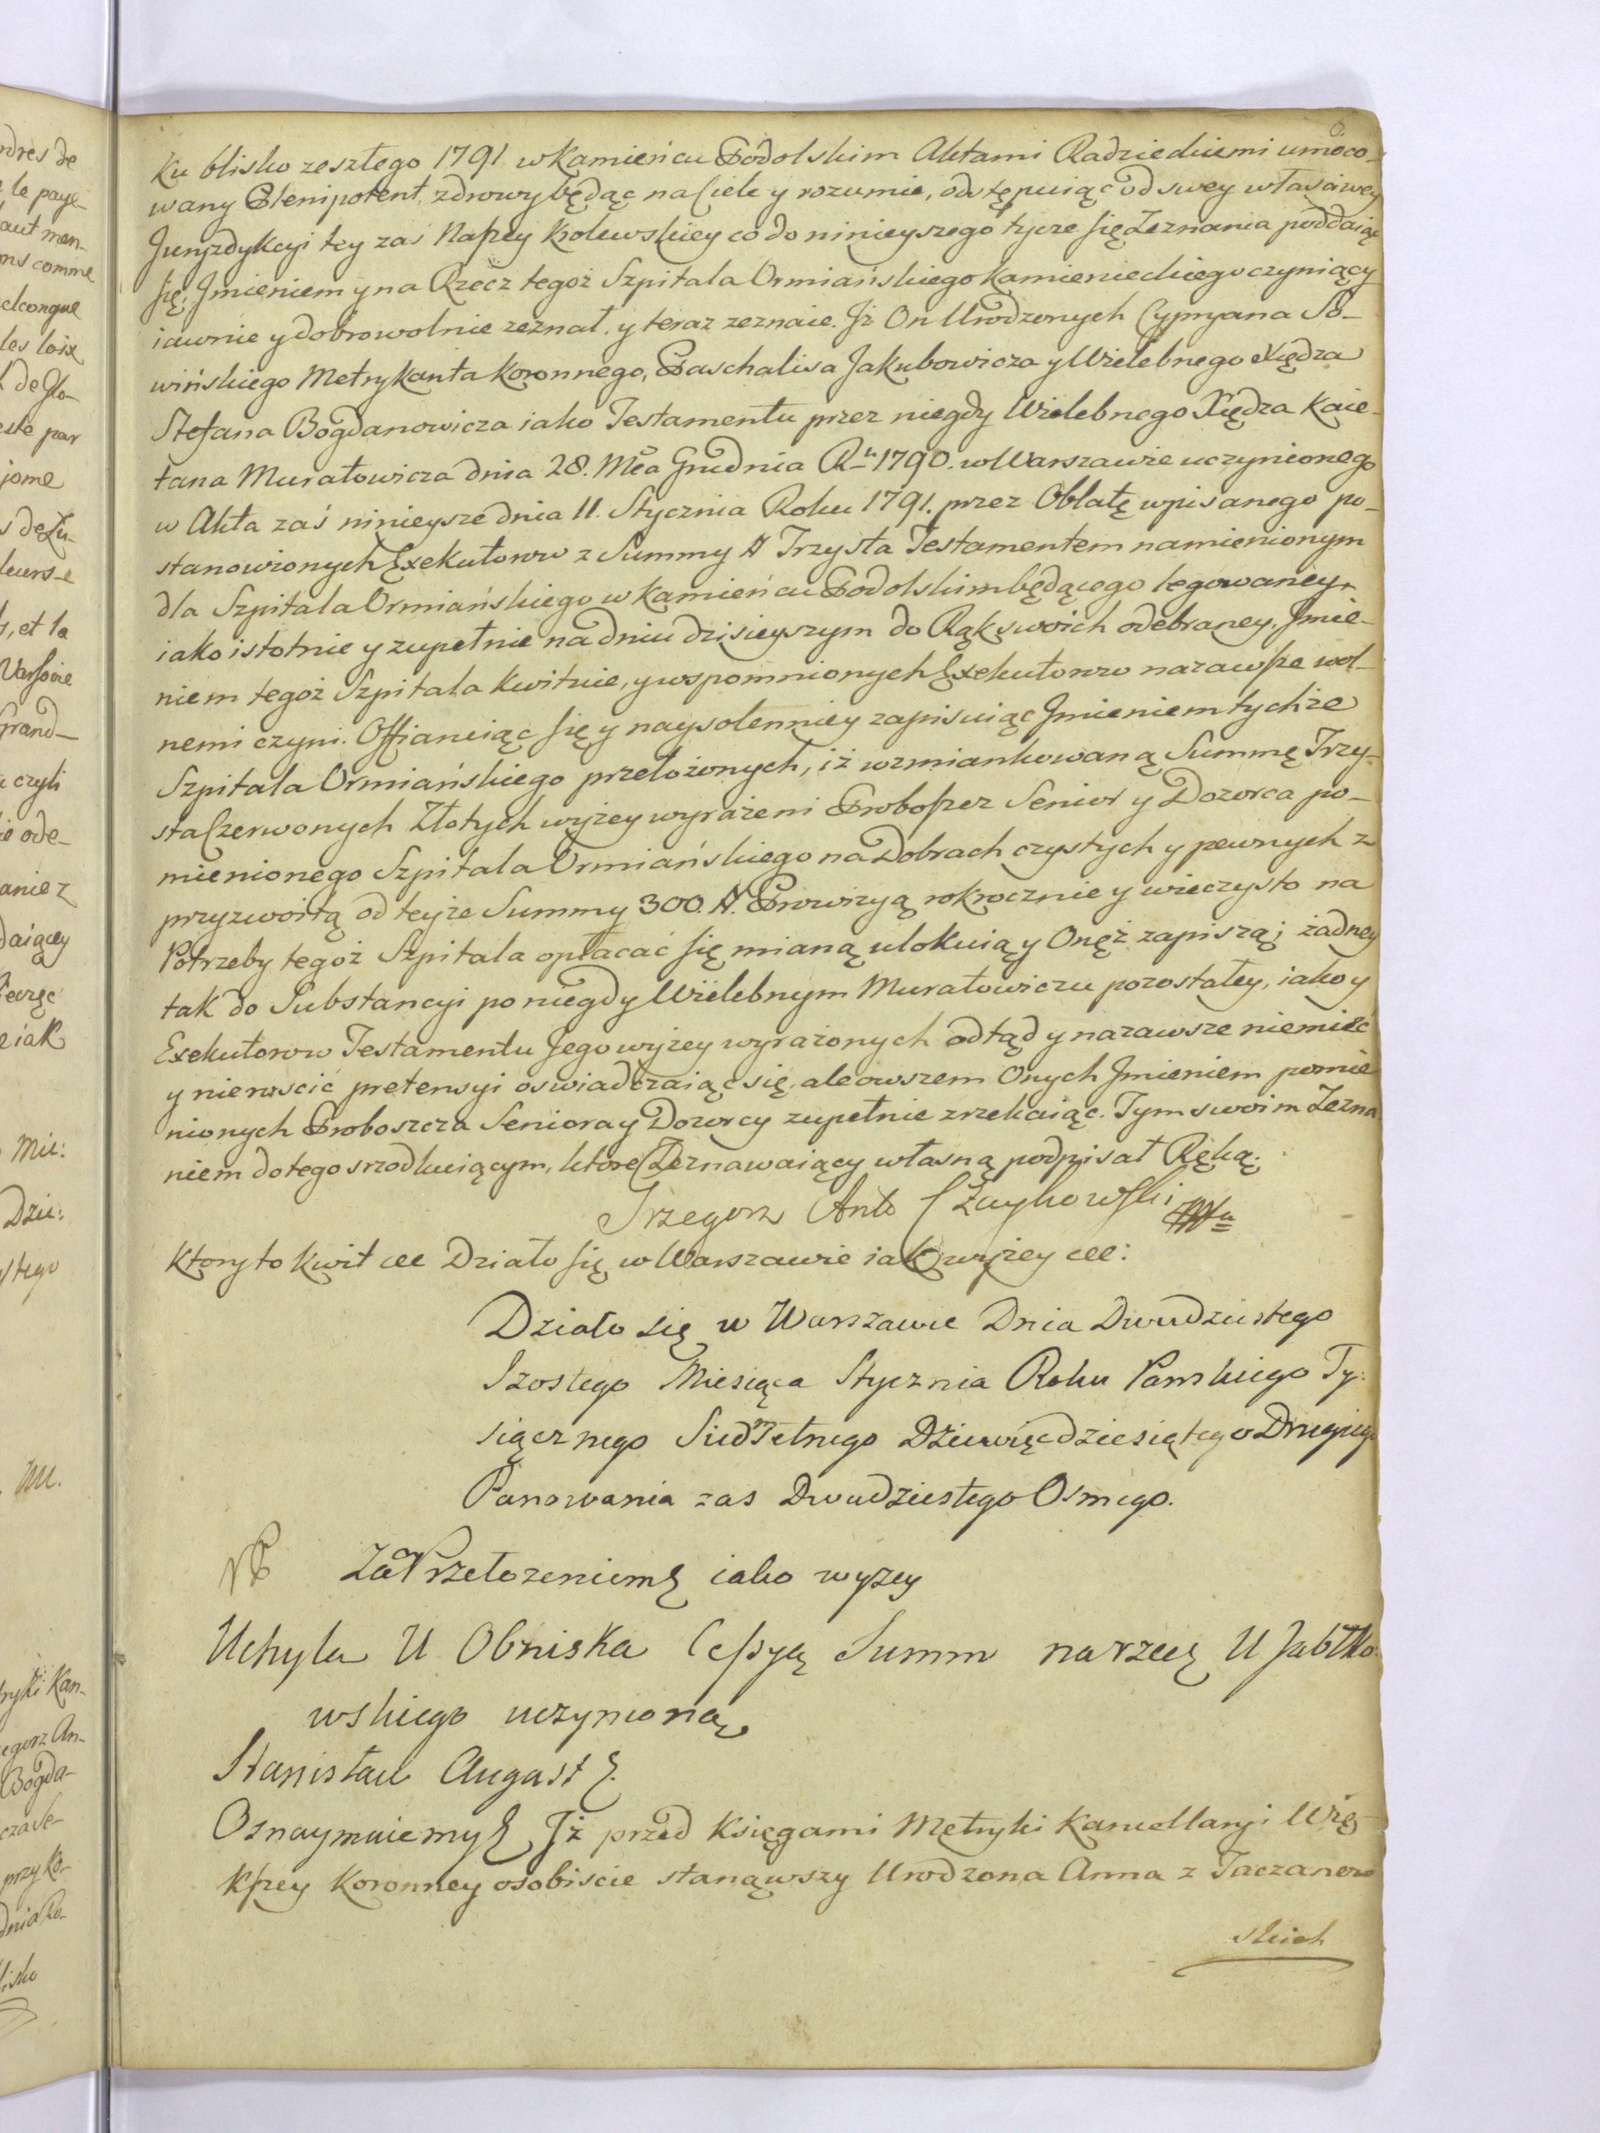 ku blisko zeszłego 1791. w Kamieńcu Podolskim Aktami Radzieckiemi umoco-
wany Plenipotent, zdrowy będąc na Ciele y rozumie, odstępuiąc od swey właściwey
Juryzdykcyi tey zaś Naszey Krolewskiey co do ninieyszego tycze się Zeznania poddaiąc
się, Jmieniem y na Rzecz tegoż Szpitala Ormiańskiego Kamienieckiego czyniący
iawnie y dobrowolnie zeznał, y teraz zeznaie. Jż On Urodzonych Cypryana So-
wińskiego Metrykanta Koronnego, Paschalisa Jakubowicza y Wielebnego Xiędza
Stefana Bogdanowicza iako Testamentu przez niegdy Wielebnego Xiędza Kaie-
tana Muratowicza dnia 28. Mca Grudnia Rku 1790. w Warszawie uczynionego
w Akta zaś ninieysze dnia 11. Stycznia Roku 1791. przez Oblatę wpisanego po-
stanowionych Exekutorow z Summy # Trzysta Testamentem namienionym
dla Szpitala Ormiańskiego w Kamieńcu Podolskim będącego legowaney,
iako istotnie y zupełnie na dniu dzisieyszym do Rąk swoich odebraney, Jmie-
niem tegoż Szpitala kwituie, y wspomnionych Exekutorow na zawsze wol-
nemi czyni. Offiaruiąc się y naysolenniey zapisuiąc Jmieniem tychże
Szpitala Ormiańskiego przełożonych, iż wzmiankowaną Summę Trzy-
sta Czerwonych Złotych wyżey wyrażeni Proboszcz Senior y Dozorca po-
mienionego Szpitala Ormiańskiego na Dobrach czystych y pewnych z
przyzwoitą od teyże Summy 300. #. Prowizyą rokrocznie y wieczysto na
Potrzeby tegoż Szpitala opłacać się mianą ulokuią y Onęż zapiszą; żadney
tak do Substancyi po niegdy Wielebnym Muratowiczu pozostałey, iako y
Exekutorow Testamentu Jego wyżey wyrażonych odtąd y na zawsze nie mieć
y nie rościć pretensyi oswiadczaiąc się, ale owszem Onych Jmieniem pomie-
nionych Proboszcza Seniora y Dozorcy zupełnie zrzekaiąc. Tym swoim Zezna-
niem do tego srzodkuiącym, ktore Zeznawaiący własną podpisał Ręką.
Grzegorz Anto Czaykowski
Ktory to kwit etc Działo się w Warszawie iak wyżey etc:
Działo się w Warszawie Dnia Dwudziestego
Szostego Miesiąca Stycznia Roku Panskiego Ty-
siącznego Siedmsetnego Dziewięcdziesiątego Drugiego
Panowania zas Dwudziestego Osmego.
Za Przełozeniem etc iako wyzey
Uchyla U Obniska Cessyą Summ na rzecz U Jabłko-
wskiego uczynioną
Stanisław August etc.
Oznaymuiemy etc Jż przed Księgami Metryki Kancellaryi Wię-
kszey Koronney osobiscie stanąwszy Urodzona Anna z Taczanow-
skich